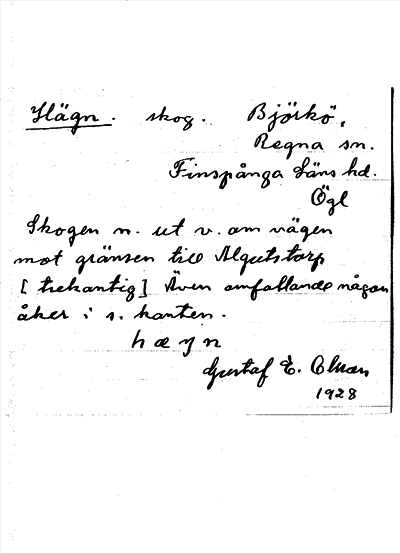 Hägn. skog. Björkö,
Regna sn.
Finspånga läns hd.
Ögl
Skogen n. ut v. om vägen
mot gränsen till Algutstorp
[trekantig] Även omfattande någon
åker i s. kanten.
hægn
Gustaf E.
1928